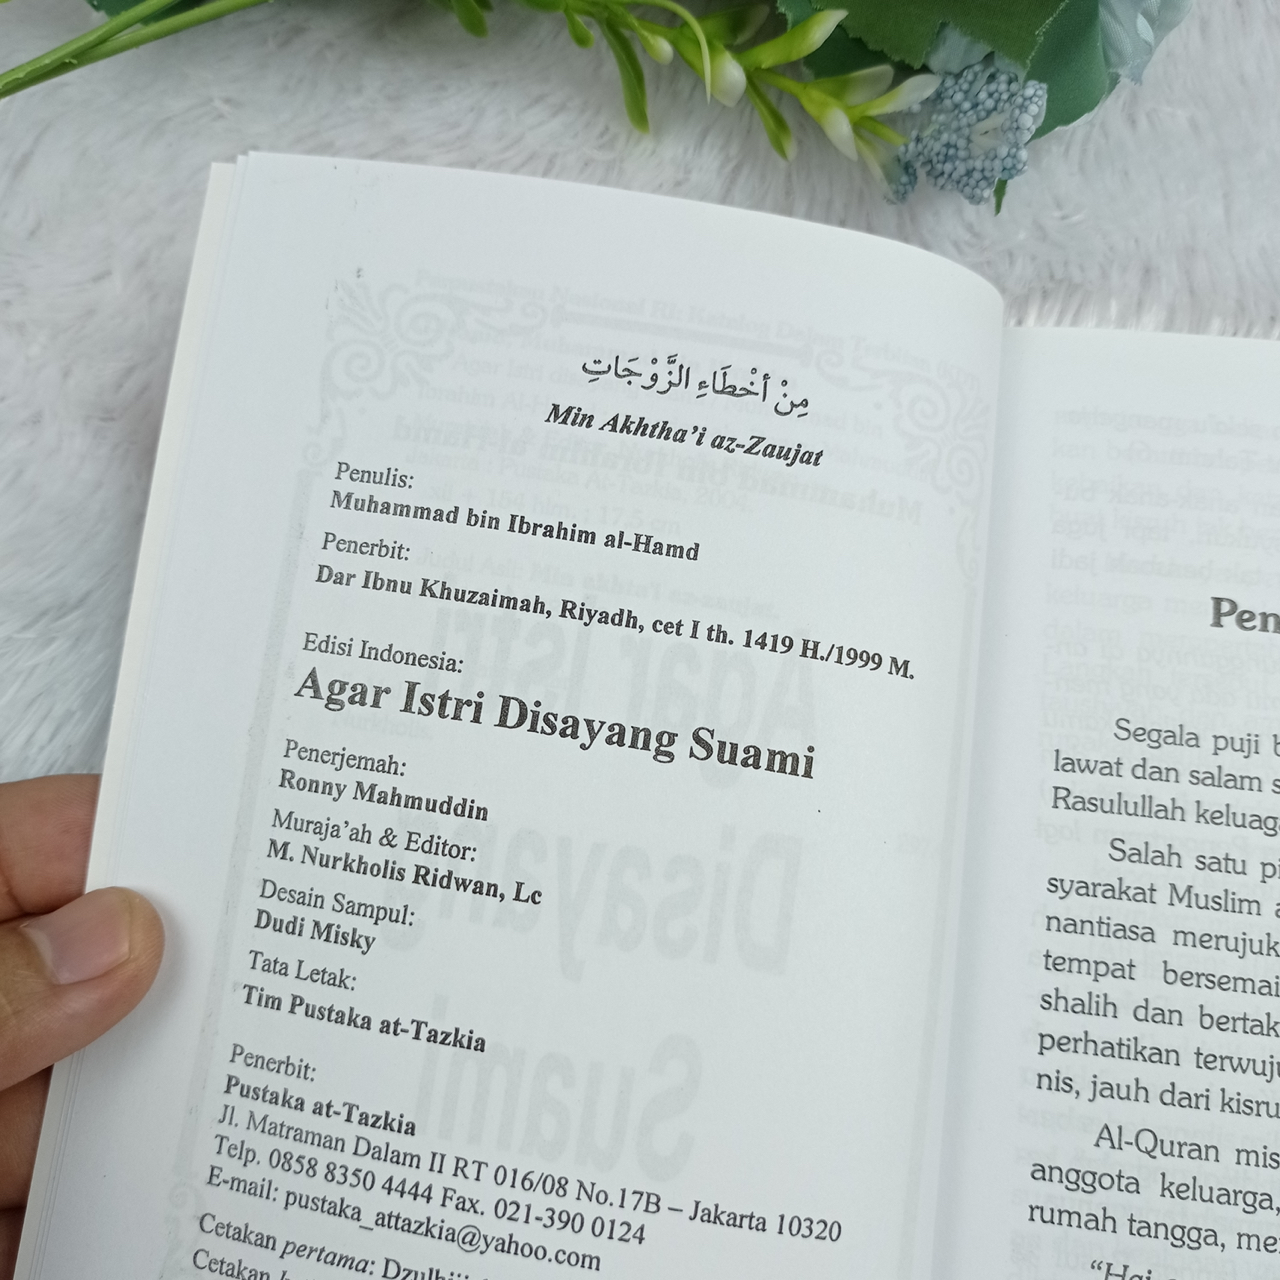 مِنْ أَخْطَاءِ الزَّوْجَاتِ
Min Akhtha’i az-Zaujat
Penulis:
Muhammad bin Ibrahim al-Hamd
Penerbit:
Dar Ibnu Khuzaimah, Riyadh, cet I th. 1419 H./1999 M.
Edisi Indonesia:
Agar Istri Disayang Suami
Penerjemah:
Ronny Mahmuddin
Muraja’ah & Editor:
M. Nurkholis Ridwan, Lc
Desain Sampul:
Dudi Misky
Tata Letak:
Tim Pustaka at-Tazkia
Penerbit:
Pustaka at-Tazkia
Jl. Matraman Dalam II RT 016/08 No.17B – Jakarta 10320
Telp. 0858 8350 4444 Fax. 021-390 0124
E-mail: pustaka_attazkia@yahoo.com
Cetakan pertama:
Cetakan
Segala puji
lawat dan salam
Rasulullah
Salah satu
syarakat Muslim
nantiasa merujuk
tempat bersemai
shalih dan
perhatikan
nis, jauh dari
Al-Quran
anggota keluarga,
rumah tangga,